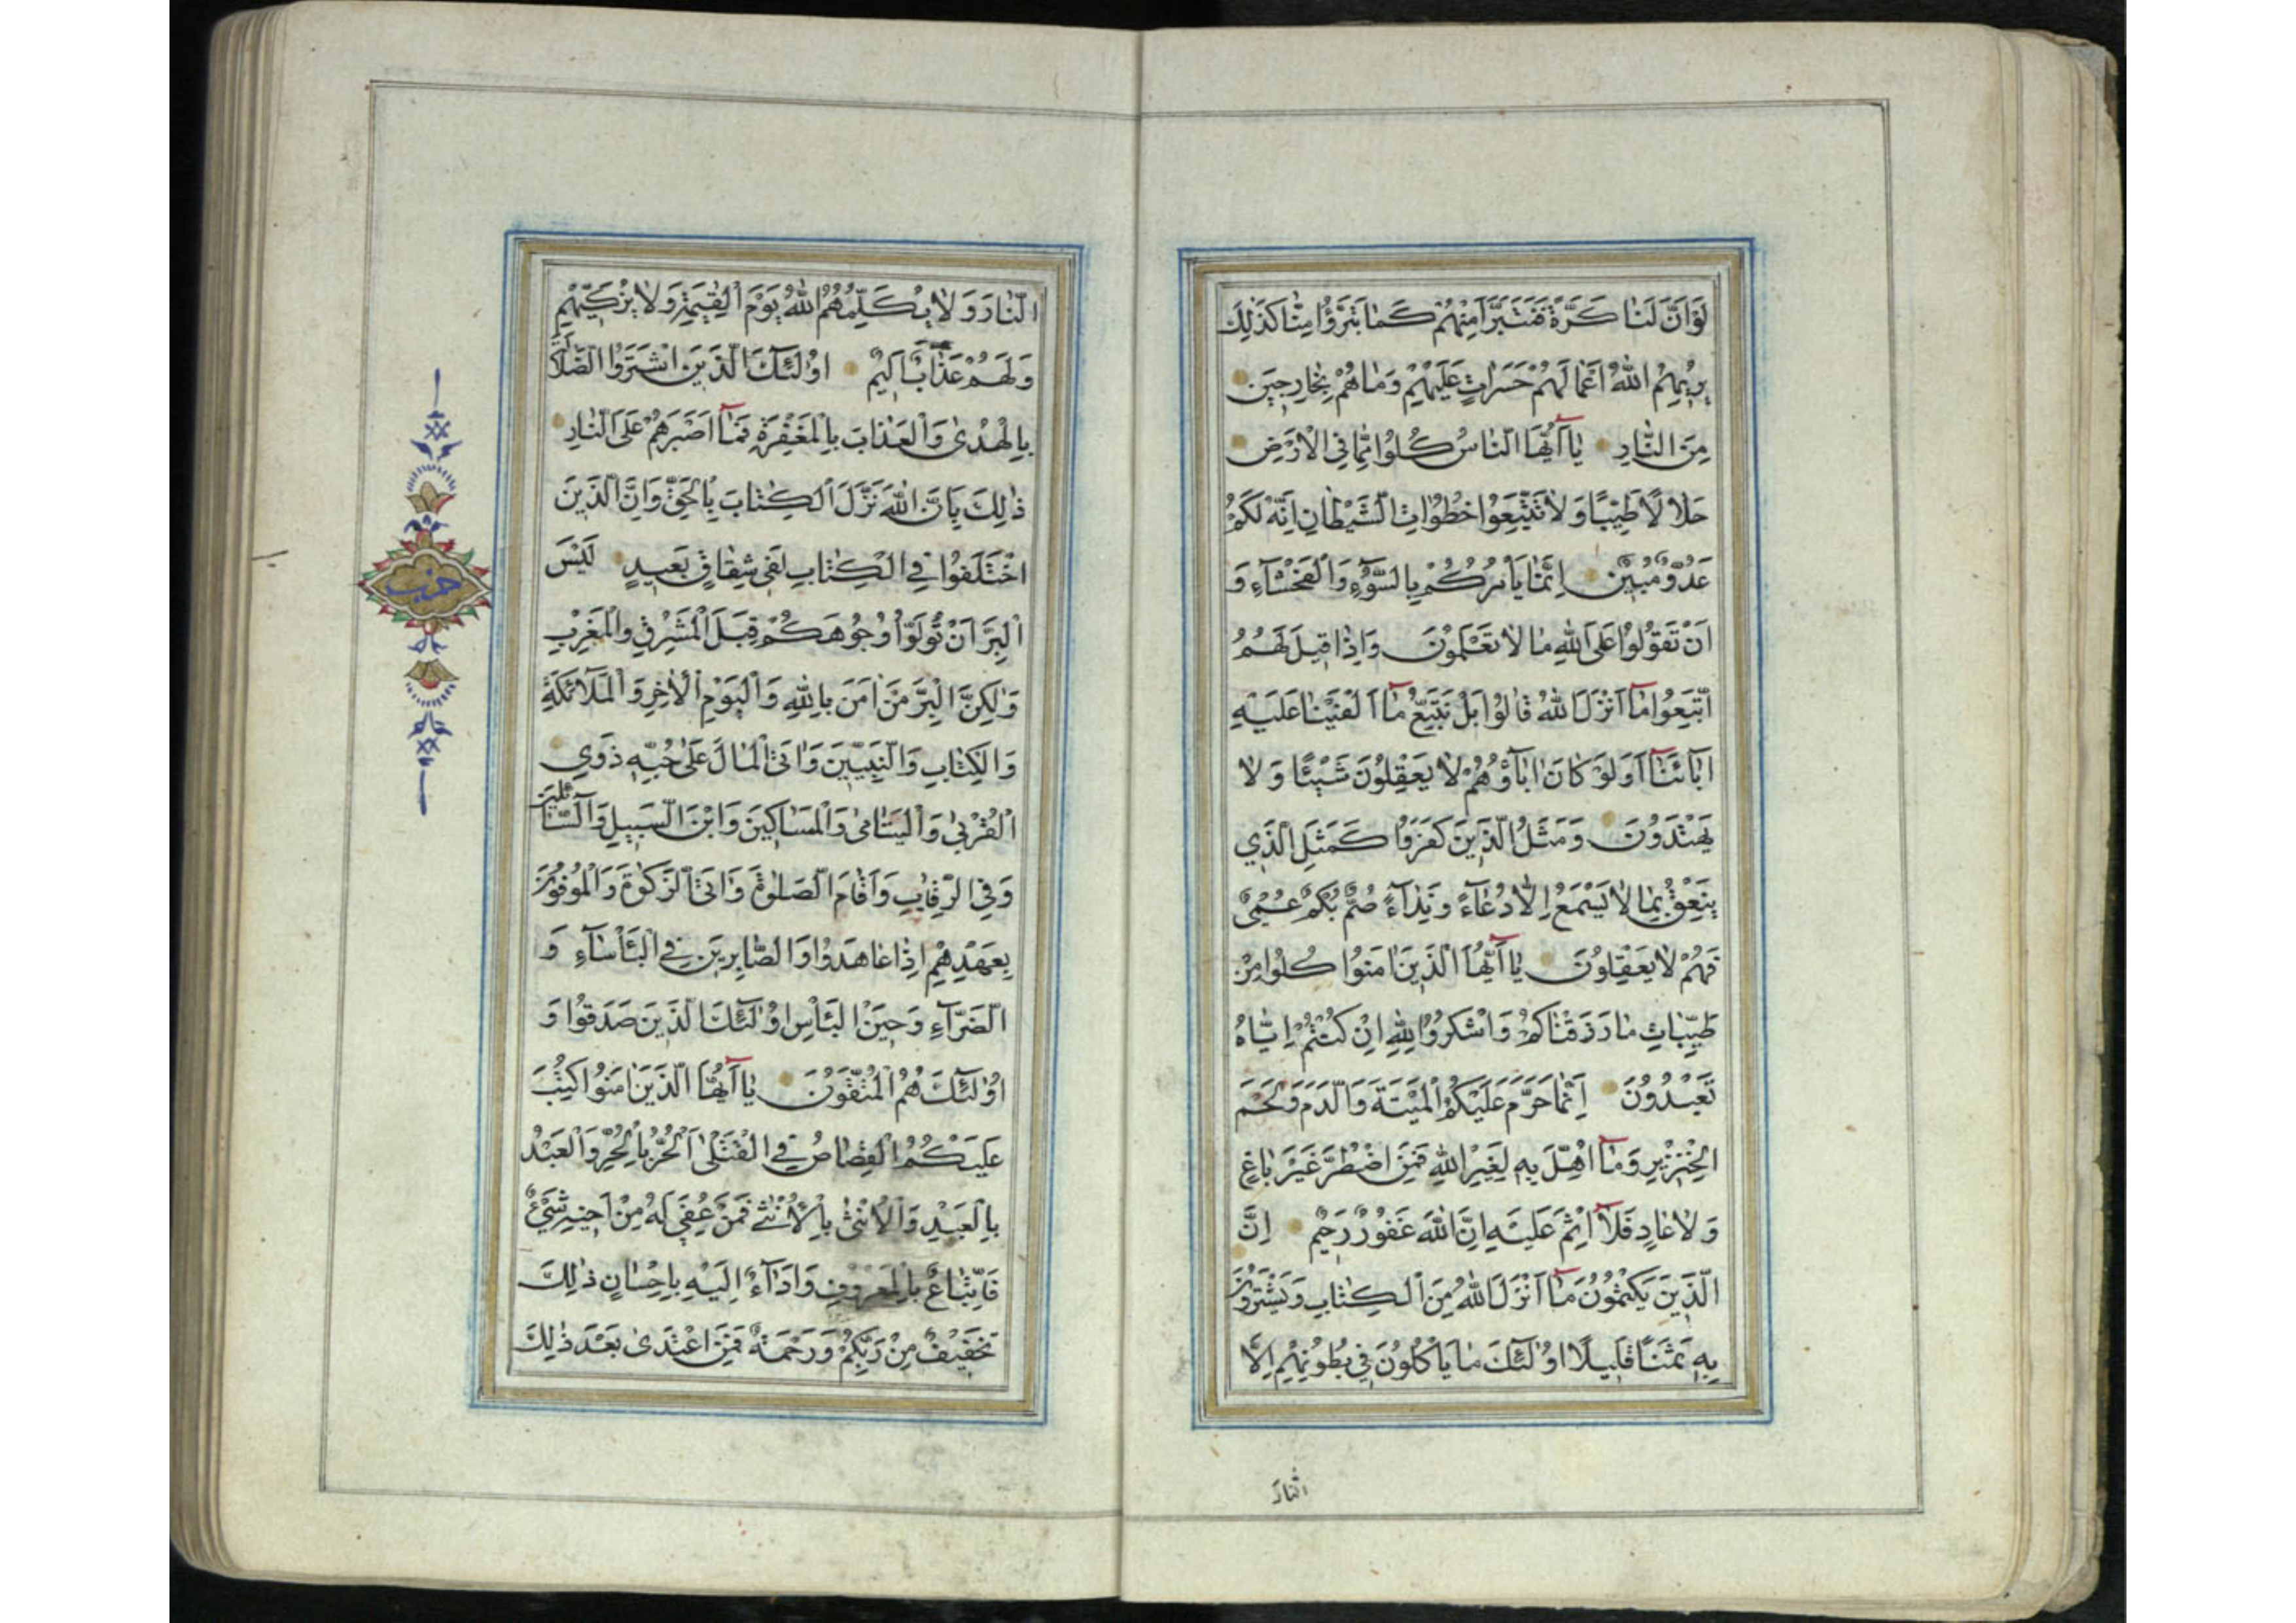 لَوْ اَنَّ لَنٰا كَرَّةً فَنَتَبَرَّاَ مِنْهُمْ كَمٰا تَبَرَّؤُا مِنّٰا كَذٰلِكَ
يُرِيهِمُ اللهُ اَعْمٰالَهُمْ حَسَرٰاتٍ عَلَيْهِمْ وَمٰا هُمْ بِخٰارِجِينَ
مِنَ النّٰارِ يٰٓا اَيُّهَا النّٰاسُ كُلُوا مِمّٰا فِي الْاَرْضِ
حَلٰالًا طَيِّبًا وَلٰا تَتَّبِعُوا خُطُوٰاتِ الشَّيْطٰانِ اِنَّهُ لَكُمْ
عَدُوٌّ مُبِينٌ اِنَّمٰا يَأْمُرُكُمْ بِالسُّوٓءِ وَالْفَحْشٰٓاءِ وَ
اَنْ تَقُولُوا عَلَى اللهِ مٰا لٰا تَعْلَمُونَ وَاِذٰا قِيلَ لَهُمُ
اتَّبِعُوا مٰٓا اَنْزَلَ اللهُ قٰالُوا بَلْ نَتَّبِعُ مٰٓا اَلْفَيْنٰا عَلَيْهِ
اٰبٰٓائَنٰٓا اَوَلَوْ كٰانَ اٰبٰٓاؤُهُمْ لٰا يَعْقِلُونَ شَيْئًا وَلٰا
يَهْتَدُونَ وَمَثَلُ الَّذِينَ كَفَرُوا كَمَثَلِ الَّذِي
يَنْعِقُ بِمٰا لٰا يَسْمَعُ اِلّٰا دُعٰٓاءً وَنِدٰٓاءً صُمٌّ بُكْمٌ عُمْيٌ
فَهُمْ لٰا يَعْقِلُونَ يٰٓا اَيُّهَا الَّذِينَ اٰمَنُوا كُلُوا مِنْ
طَيِّبٰاتِ مٰا رَزَقْنٰاكُمْ وَاشْكُرُوا لِلّٰهِ اِنْ كُنْتُمْ اِيّٰاهُ
تَعْبُدُونَ اِنَّمٰا حَرَّمَ عَلَيْكُمُ الْمَيْتَةَ وَالدَّمَ وَلَحْمَ
الْخِنْزِيرِ وَمٰٓا اُهِلَّ بِهِ لِغَيْرِ اللهِ فَمَنِ اضْطُرَّ غَيْرَ بٰاغٍ
وَلٰا عٰادٍ فَلٰٓا اِثْمَ عَلَيْهِ اِنَّ اللهَ غَفُورٌ رَحِيمٌ اِنَّ
الَّذِينَ يَكْتُمُونَ مٰٓا اَنْزَلَ اللهُ مِنَ الْكِتٰابِ وَيَشْتَرُونَ
بِهِ ثَمَنًا قَلِيلًا اُولٰٓئِكَ مٰا يَأْكُلُونَ فِي بُطُونِهِمْ اِلَّا
النّٰارَ
النّٰارَ وَلٰا يُكَلِّمُهُمُ اللهُ يَوْمَ الْقِيٰمَةِ وَلٰا يُزَكِّيهِمْ
وَلَهُمْ عَذٰابٌ اَلِيمٌ اُولٰٓئِكَ الَّذِينَ اشْتَرَوُا الضَّلٰالَةَ
بِالْهُدٰى وَالْعَذٰابَ بِالْمَغْفِرَةِ فَمٰٓا اَصْبَرَهُمْ عَلَى النّٰارِ
ذٰلِكَ بِاَنَّ اللهَ نَزَّلَ الْكِتٰابَ بِالْحَقِّ وَاِنَّ الَّذِينَ
اخْتَلَفُوا فِي الْكِتٰابِ لَفِي شِقٰاقٍ بَعِيدٍ لَيْسَ
الْبِرَّ اَنْ تُوَلُّوا وُجُوهَكُمْ قِبَلَ الْمَشْرِقِ وَالْمَغْرِبِ
وَلٰكِنَّ الْبِرَّ مَنْ اٰمَنَ بِاللهِ وَالْيَوْمِ الْاٰخِرِ وَالْمَلٰٓائِكَةِ
وَالْكِتٰابِ وَالنَّبِيِّينَ وَاٰتَى الْمٰالَ عَلٰى حُبِّهِ ذَوِي
الْقُرْبٰى وَالْيَتٰامٰى وَالْمَسٰاكِينَ وَابْنَ السَّبِيلِ وَالسّٰٓائِلِينَ
وَفِي الرِّقٰابِ وَاَقٰامَ الصَّلٰوةَ وَاٰتَى الزَّكٰوةَ وَالْمُوفُونَ
بِعَهْدِهِمْ اِذٰا عٰاهَدُوا وَالصّٰابِرِينَ فِي الْبَأْسٰٓاءِ وَ
الضَّرّٰٓاءِ وَحِينَ الْبَأْسِ اُولٰٓئِكَ الَّذِينَ صَدَقُوا وَ
اُولٰٓئِكَ هُمُ الْمُتَّقُونَ يٰٓا اَيُّهَا الَّذِينَ اٰمَنُوا كُتِبَ
عَلَيْكُمُ الْقِصٰاصُ فِي الْقَتْلٰى اَلْحُرُّ بِالْحُرِّ وَالْعَبْدُ
بِالْعَبْدِ وَالْاُنْثٰى بِالْاُنْثٰى فَمَنْ عُفِيَ لَهُ مِنْ اَخِيهِ شَيْءٌ
فَاتِّبٰاعٌ بِالْمَعْرُوفِ وَاَدٰٓاءٌ اِلَيْهِ بِاِحْسٰانٍ ذٰلِكَ
تَخْفِيفٌ مِنْ رَبِّكُمْ وَرَحْمَةٌ فَمَنِ اعْتَدٰى بَعْدَ ذٰلِكَ
حزب